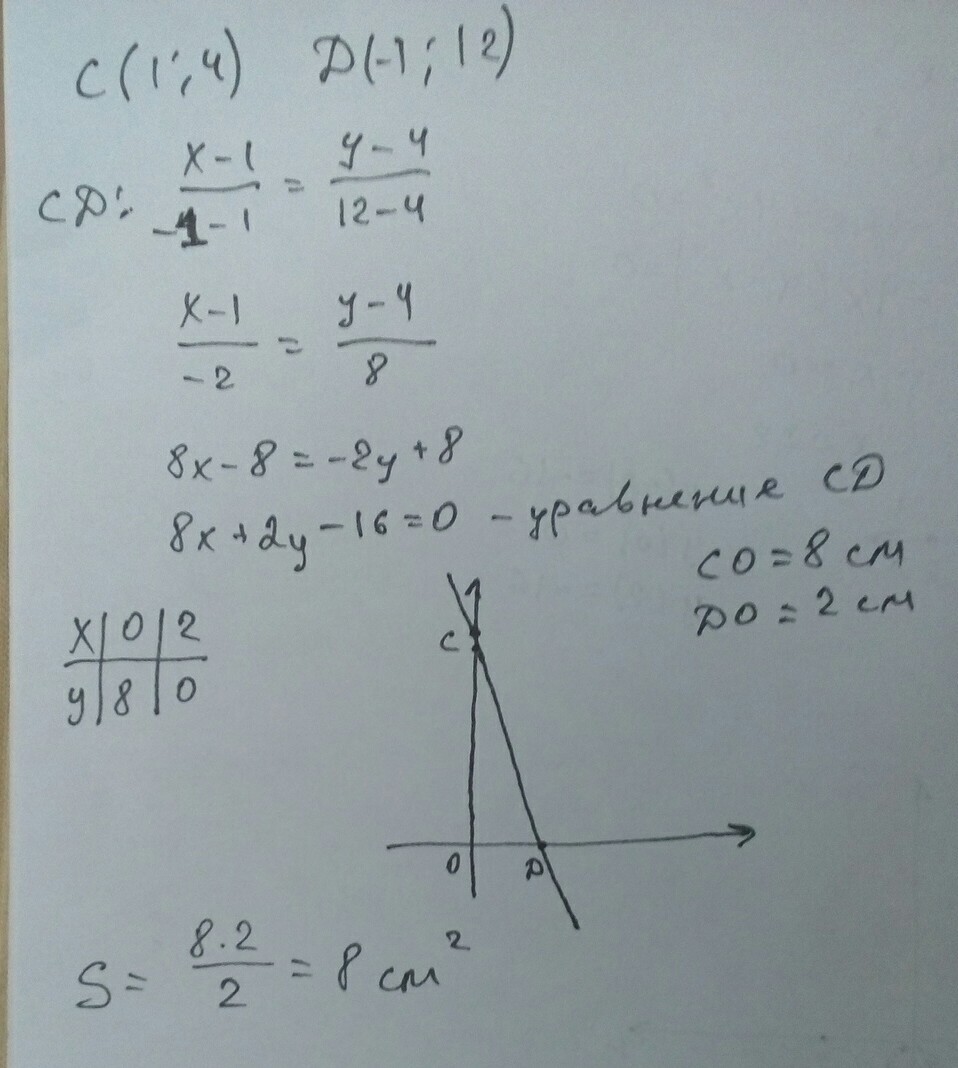 C(1;4) D(-1;12)
CD: \frac{x-1}{-1-1} = \frac{y-4}{12-4}
\frac{x-1}{-2} = \frac{y-4}{8}
8x-8=-2y+8
8x+2y-16=0 - уравнение CD
CO=8 см
DO=2 см
x|0|2
y|8|0
C
O D
S= \frac{8.2}{2} = 8 см²